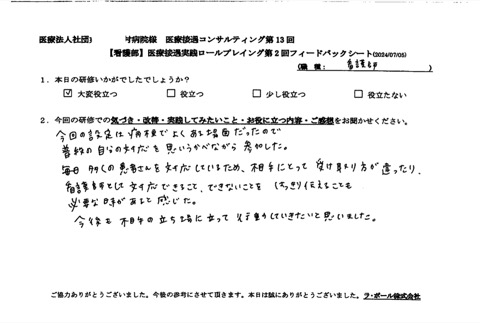 医療法人社団 病院様 医療接遇コンサルティング第13回
【看護部】医療接遇実践ロールプレイング第2回フィードバックシート(2024/07/05)
(職種: 看護師 )
1.本日の研修いかがでしたでしょうか?
☑ 大変役立つ □ 役立つ □ 少し役立つ □ 役立たない
2.今回の研修での気づき・改善・実践してみたいこと・お役に立つ内容・ご感想をお聞かせください。
今回の設定は病棟でよくある場面だったので
普段の自分の対応を思いうかべながら参加した。
毎日多くの患者さんを対応しているため、相手にとって受け取り方が違ったり、
看護師として対応できること、できないことを はっきり伝えることも
必要な時があると感じた。
今後も相手の立ち場に立って行動していきたいと思いました。
ご協力ありがとうございました。今後の参考にさせて頂きます。本日は誠にありがとうございました。ラ・ポール株式会社